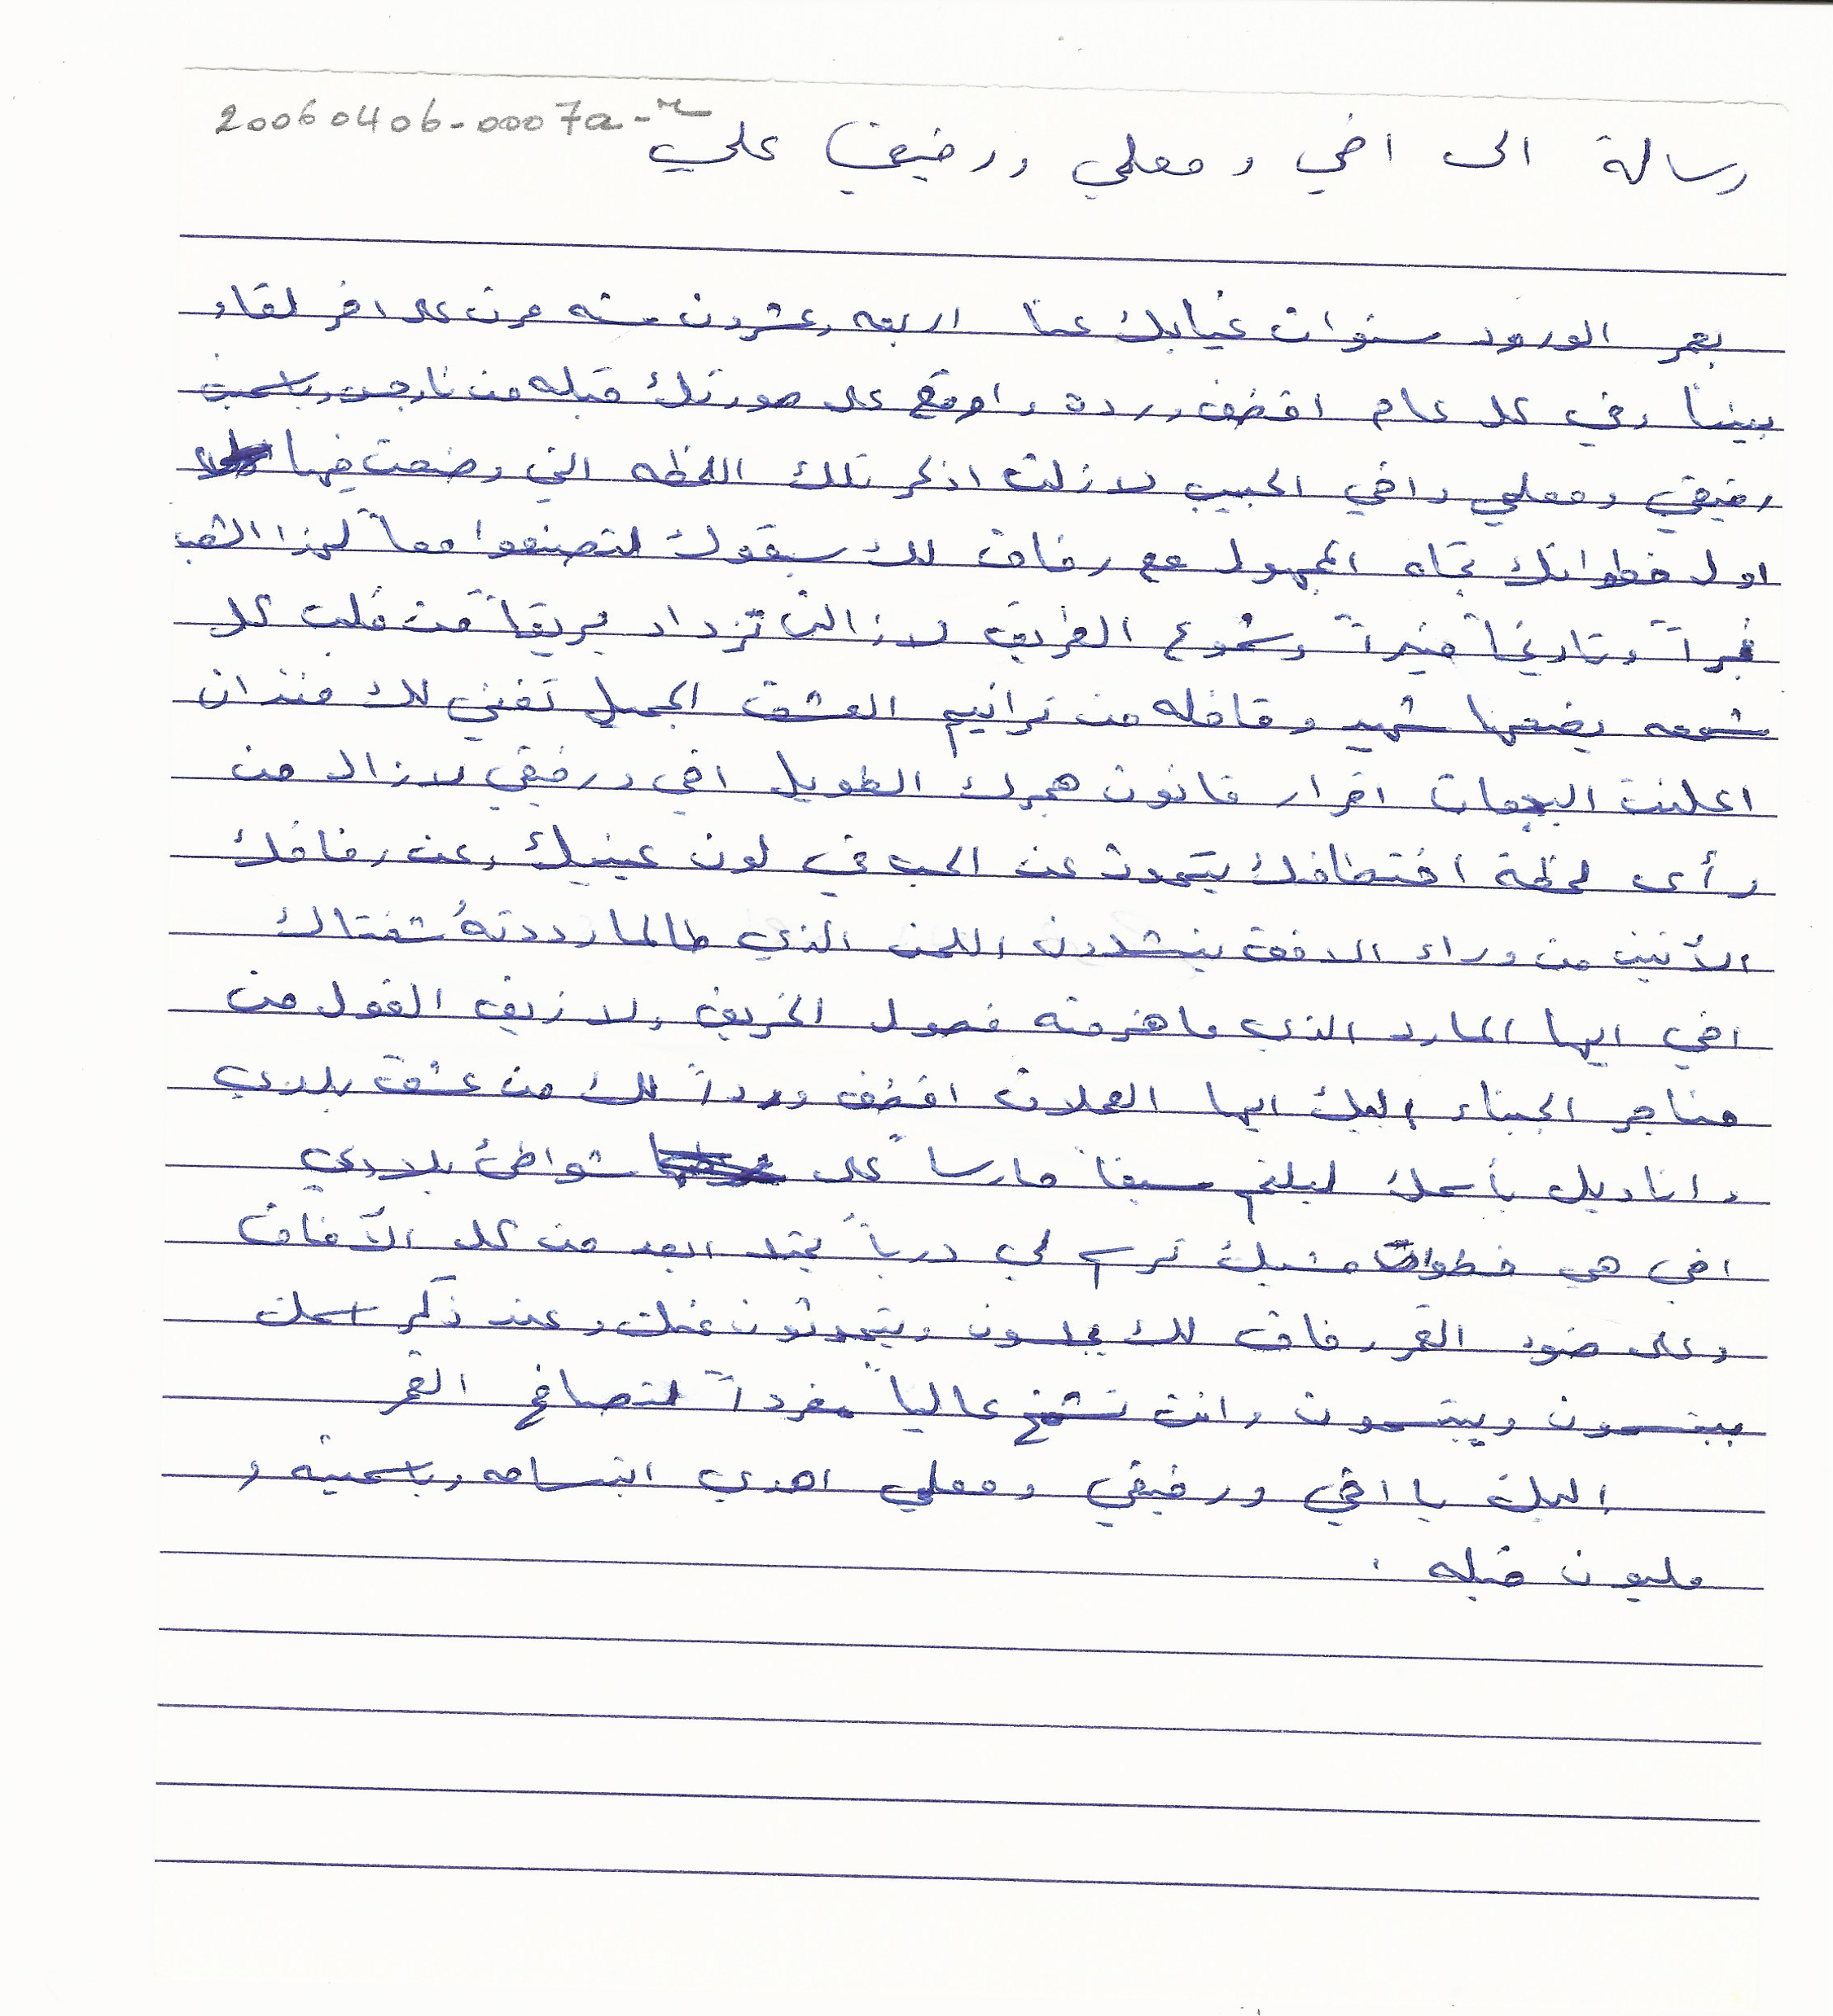 20060406-0007a-r
رسالة الى اخي ومعلمي ورفيقي علي
بعمر الورود سنوات غيابك عنا اربعه وعشرون سنه مرت على اخر لقاء
بيننا وفي كل عام اقطف وردة واوقع على صورتك قبله من نارجس وياسمين
رفيقي ومعلمي واخي الحبيب لازلت اذكر تلك اللحظه التي وضعت فيها
اول خطواتك تجاه المجهول مع رفاق لك سبقوك لتصنعوا معاً لهذا الشعب
فجراً وتاريخاً منيراً وشموع الطريق لازالت تزداد بريقاً من قلب كل
شمعه يضعها شهيد وقافله من ترانيم العشق الجميل تغني لك منذ ان
اعلنت البجعات اقرار قانون هجرك الطويل اخي ورفيقي لازال من
رأى لحظة اختطافك يتحدث عن الحب في لون عينيك وعن رفاقك
الآتين من وراء الافق ينشدون اللحن الذي طالما رددتهُ شفتاك
اخي ايها المارد الذي ما هزمته فصول الخريف ولا زيف القول من
حناجر الجبناء اليك ايها العملاق اقطف ورداً لك من عشق بلادي
واناديك بأسمك ليلتحم سيفاً حارساً على شواطئ بلادي
اخي هي خطوات مشيك ترسم لي درباً يمتد ابعد من كل الآفاق
وعلى ضوء القمر رفاق لك يجلسون ويتحدثون عنك وعند ذكر اسمك
يبتسمون ويبتسمون وانت تشمخ عالياً مغرداً لتصافح القمر
اليك يا اخي ورفيقي ومعلمي اهدي ابتسامه وياسمينه و
مليون قبله .